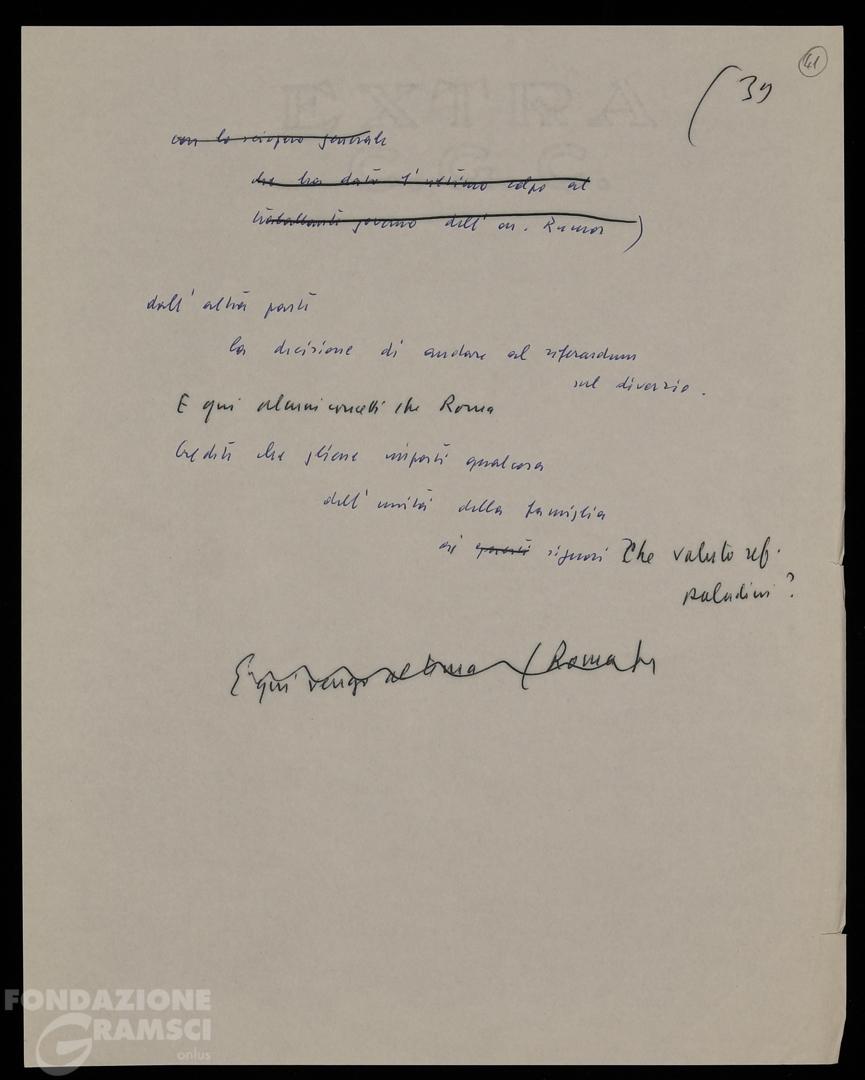 41
(39
con lo sciopero generale
che ha dato l'ultimo colpo al
traballante governo dell'on. Rumor)
dall'altra parte
la decisione di andare al referendum
sul divorzio.
E qui alcuni concetti che Roma
Credete che gliene importi qualcosa
dell'unità della famiglia
ai questi signori che
paladini?
E qui vengo al tema (Roma
FONDAZIONE
GRAMSCI
onlus